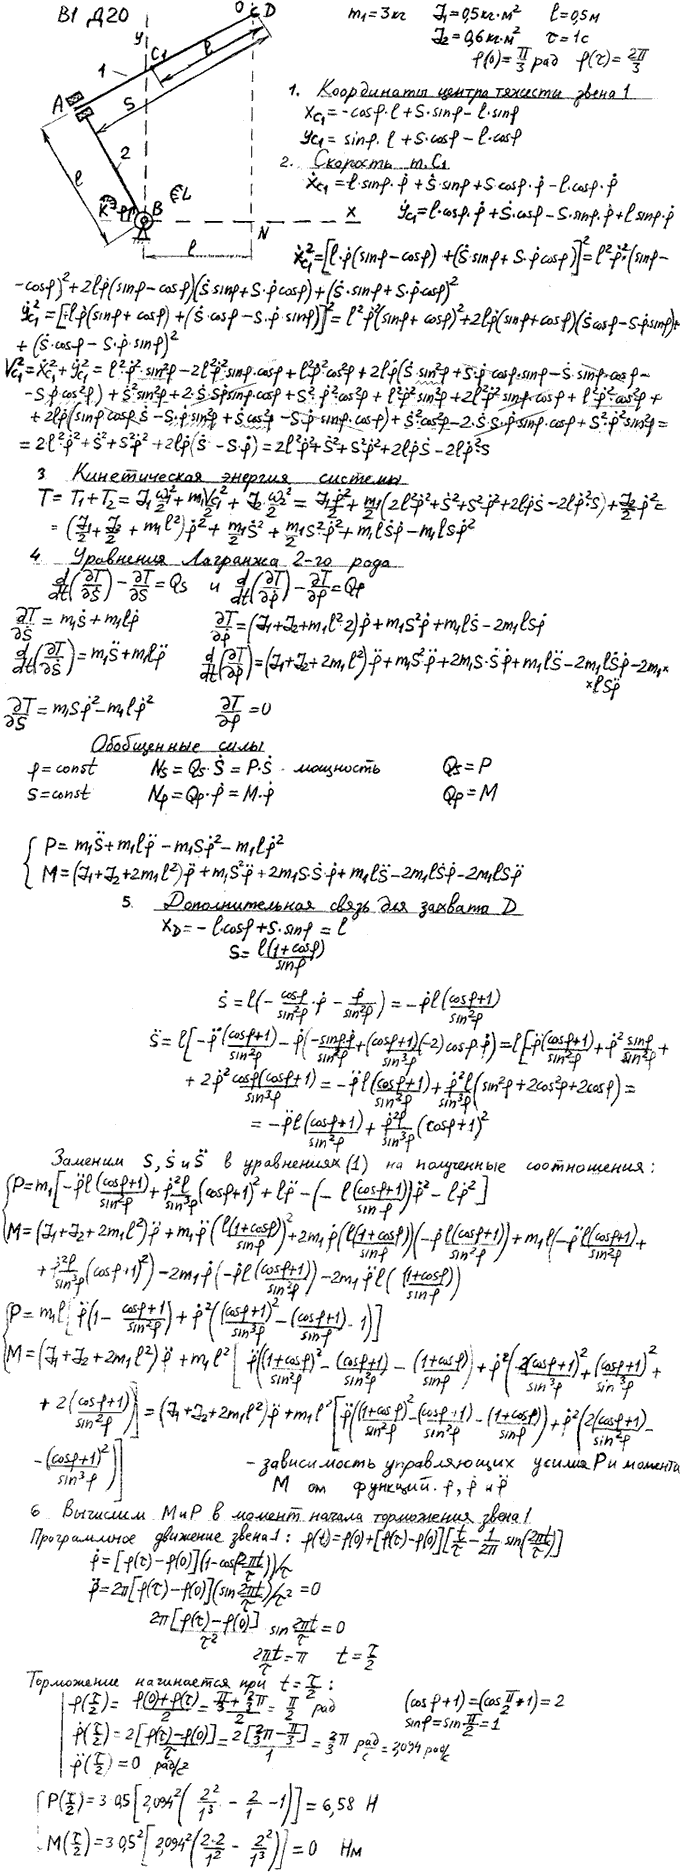 В1 Д20
m₁=3кг J₁=0,5кг·м² l=0,5м
J₂=0,6кг·м² τ=1с
φ(0)=π/3 рад φ(τ)=2π/3
y O D C₁ l 1 S A 2 l B x N l
1. Координаты центра тяжести звена 1
x_C₁=-cosφ·l+S·sinφ-l·sinφ
y_C₁=sinφ·l+S·cosφ-l·cosφ
2. Скорость т.C₁
ẋ_C₁=l·sinφ·φ̇+Ṡ·sinφ+S·cosφ·φ̇-l·cosφ·φ̇
ẏ_C₁=l·cosφ·φ̇+Ṡ·cosφ-S·sinφ·φ̇+l·sinφ·φ̇
ẋ²_C₁=[l·φ̇(sinφ-cosφ)+(Ṡ·sinφ+S·φ̇cosφ)]²=l²φ̇²·(sinφ-
-cosφ)²+2lφ̇(sinφ-cosφ)(Ṡsinφ+S·φ̇cosφ)+(Ṡ·sinφ+S·φ̇cosφ)²
ẏ²_C₁=[lφ̇(sinφ+cosφ)+(Ṡ·cosφ-S·φ̇·sinφ)]²=l²φ̇²(sinφ+cosφ)²+2lφ̇(sinφ+cosφ)(Ṡcosφ-Sφ̇sinφ)+
+(Ṡ·cosφ-S·φ̇·sinφ)²
V²_C₁=ẋ²_C₁+ẏ²_C₁=l²φ̇²·sin²φ-2l²φ̇²sinφ·cosφ+l²φ̇²cos²φ+2lφ̇(Ṡsin²φ+S·φ̇·cosφ·sinφ-Ṡ·sinφ·cosφ-
-Sφ̇cos²φ)+Ṡ²sin²φ+2·Ṡ·Sφ̇sinφ·cosφ+S²·φ̇²cos²φ+l²φ̇²sin²φ+2l²φ̇²sinφ·cosφ+l²φ̇²cos²φ+
+2lφ̇(sinφcosφ·Ṡ-S·φ̇·sin²φ+Ṡcos²φ-S·φ̇·sinφ·cosφ)+Ṡ²cos²φ-2·Ṡ·S·φ̇·sinφ·cosφ+S²·φ̇²sin²φ=
=2l²φ̇²+Ṡ²+S²φ̇²+2lφ̇(Ṡ-S·φ̇)=2l²φ̇²+Ṡ²+S²φ̇²+2lφ̇Ṡ-2lφ̇²S
3 Кинетическая энергия системы
T=T₁+T₂=J₁ω₁²/2+m₁V²_C₁/2+J₂·ω₂²/2=J₁φ̇²/2+m₁/2(2l²φ̇²+Ṡ²+S²φ̇²+2lφ̇Ṡ-2lφ̇²S)+J₂/2φ̇²=
=(J₁/2+J₂/2+m₁l²)φ̇²+m₁/2Ṡ²+m₁/2S²φ̇²+m₁lṠφ̇-m₁lSφ̇²
4 Уравнения Лагранжа 2-го рода
d/dt(∂T/∂Ṡ)-∂T/∂S=Q_S и d/dt(∂T/∂φ̇)-∂T/∂φ=Qφ
∂T/∂Ṡ=m₁Ṡ+m₁lφ̇ ∂T/∂φ̇=(J₁+J₂+m₁l²·2)φ̇+m₁S²φ̇+m₁lṠ-2m₁lSφ̇
d/dt(∂T/∂Ṡ)=m₁S̈+m₁lφ̈ d/dt(∂T/∂φ̇)=(J₁+J₂+2m₁l²)φ̈+m₁S²φ̈+2m₁S·Ṡφ̇+m₁lS̈-2m₁lṠφ̇-2m₁×
×lSφ̈
∂T/∂S=m₁Sφ̇²-m₁lφ̇² ∂T/∂φ=0
Обобщенные силы
φ=const N_S=Q_S·Ṡ=P·Ṡ - мощность Q_S=P
S=const Nφ=Qφ·φ̇=M·φ̇ Qφ=M
P=m₁S̈+m₁lφ̈-m₁Sφ̇²-m₁lφ̇²
M=(J₁+J₂+2m₁l²)φ̈+m₁S²φ̈+2m₁S·Ṡ·φ̇+m₁lS̈-2m₁lṠφ̇-2m₁lSφ̈
5. Дополнительная связь для захвата D
x_D=-l·cosφ+S·sinφ=l
S=l(1+cosφ)/sinφ
Ṡ=l(-cosφ/sin²φ·φ̇-φ̇/sin²φ)=-φ̇l(cosφ+1)/sin²φ
S̈=l[-φ̈(cosφ+1)/sin²φ-φ̇(-sinφφ̇/sin²φ+(cosφ+1)/sin³φ(-2)cosφ·φ̇)]=l[-φ̈(cosφ+1)/sin²φ+φ̇²sinφ/sin²φ+
+2φ̇²cosφ(cosφ+1)/sin³φ=-φ̈l(cosφ+1)/sin²φ+φ̇²l/sin³φ(sin²φ+2cos²φ+2cosφ)=
=-φ̈l(cosφ+1)/sin²φ+φ̇²l/sin³φ(cosφ+1)²
Заменим S, Ṡ и S̈ в уравнениях (1) на полученные соотношения:
P=m₁[-φ̈l(cosφ+1)/sin²φ+φ̇²l/sin³φ(cosφ+1)²+lφ̈-(-l(cosφ+1)/sinφ)φ̇²-lφ̇²]
M=(J₁+J₂+2m₁l²)φ̈+m₁φ̈(l(1+cosφ)/sinφ)²+2m₁φ̇(l(1+cosφ)/sinφ)(-φ̇l(cosφ+1)/sin²φ)+m₁l(-φ̈l(cosφ+1)/sin²φ+
+φ̇²l/sin³φ(cosφ+1)²)-2m₁φ̇(-φ̇l(cosφ+1)/sin²φ)-2m₁φ̈l((1+cosφ)/sinφ)
P=m₁l[φ̈(1-(cosφ+1)/sin²φ)+φ̇²((cosφ+1)²/sin³φ-(cosφ+1)/sinφ-1)]
M=(J₁+J₂+2m₁l²)φ̈+m₁l²[φ̈((1+cosφ)²/sin²φ-(cosφ+1)/sin²φ-(1+cosφ)/sinφ)+φ̇²(2(cosφ+1)²/sin³φ+(cosφ+1)²/sin³φ+
+2(cosφ+1)/sin²φ)]=(J₁+J₂+2m₁l²)φ̈+m₁l²[φ̈((1+cosφ)²/sin²φ-(cosφ+1)/sin²φ-(1+cosφ)/sinφ)+φ̇²(2(cosφ+1)/sin²φ-
-(cosφ+1)²/sin³φ)] - зависимость управляющих усилия P и момента
M от функций φ, φ̇ и φ̈
6 Вычислим M и P в момент начала торможения звена 1
Программное движение звена 1: φ(t)=φ(0)+[φ(τ)-φ(0)][t/τ-1/2π sin(2πt/τ)]
φ̇=[φ(τ)-φ(0)](1-cos(2πt/τ))/τ
φ̈=2π[φ(τ)-φ(0)](sin2πt/τ)/τ²=0
2π[φ(τ)-φ(0)]/τ² sin2πt/τ=0
2πt/τ=π t=τ/2
Торможение начинается при t=τ/2:
φ(τ/2)=(φ(0)+φ(τ))/2=(π/3+2/3π)/2=π/2 рад (cosφ+1)=(cosπ/2+1)=2
φ̇(τ/2)=2[φ(τ)-φ(0)]/τ=2[2/3π-π/3]/1=2/3π рад/с=2,094 рад/с sinφ=sinπ/2=1
φ̈(τ/2)=0 рад/с²
P(τ/2)=3·0,5[2,094²(2²/1³-2/1-1)]=6,58 Н
M(τ/2)=3·0,5²[2,094²(2·2/1²-2²/1³)]=0 Нм